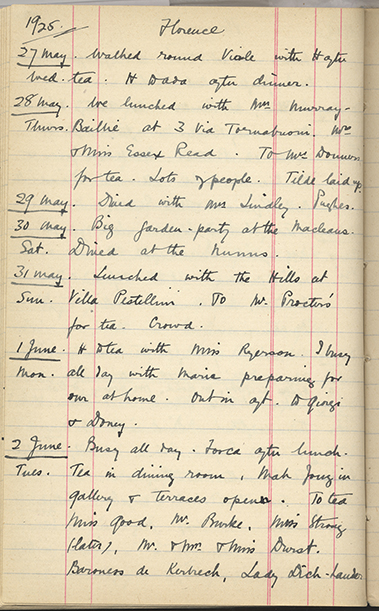 1925. Florence
27 May. Walked round Viale with H after
Wed. tea. H Dada after dinner.
28 May. We lunched with Mrs Murray-
Thurs. Baillie at 3 Via Tornabuoni. Mrs
& Miss Essex Read. To Mrs
for tea. Lots of people. Tilde laid up.
29 May. Dined with Mrs Lindley. Pughes.
30 May. Big garden-party at the Macleans.
Sat. Dined at the Nunns.
31 May. Lunched with the Hills at
Sun. Villa Pistellini. To Mr Proctors'
for tea. Crowd.
1 June. H to tea with Miss Ryerson. I busy
Mon. all day with Maria preparing for
our at home. Out in aft. to Giorgi
& Doney.
2 June. Busy all day. after lunch.
Tues. Tea in dining room, Mah Jong in
gallery & terraces open. To tea
Miss Good, Mr. Burke, Miss Strong
(later), Mr. & Mrs & Miss Durst.
Baroness de Kerbrech, Lady Dick-Lauder.